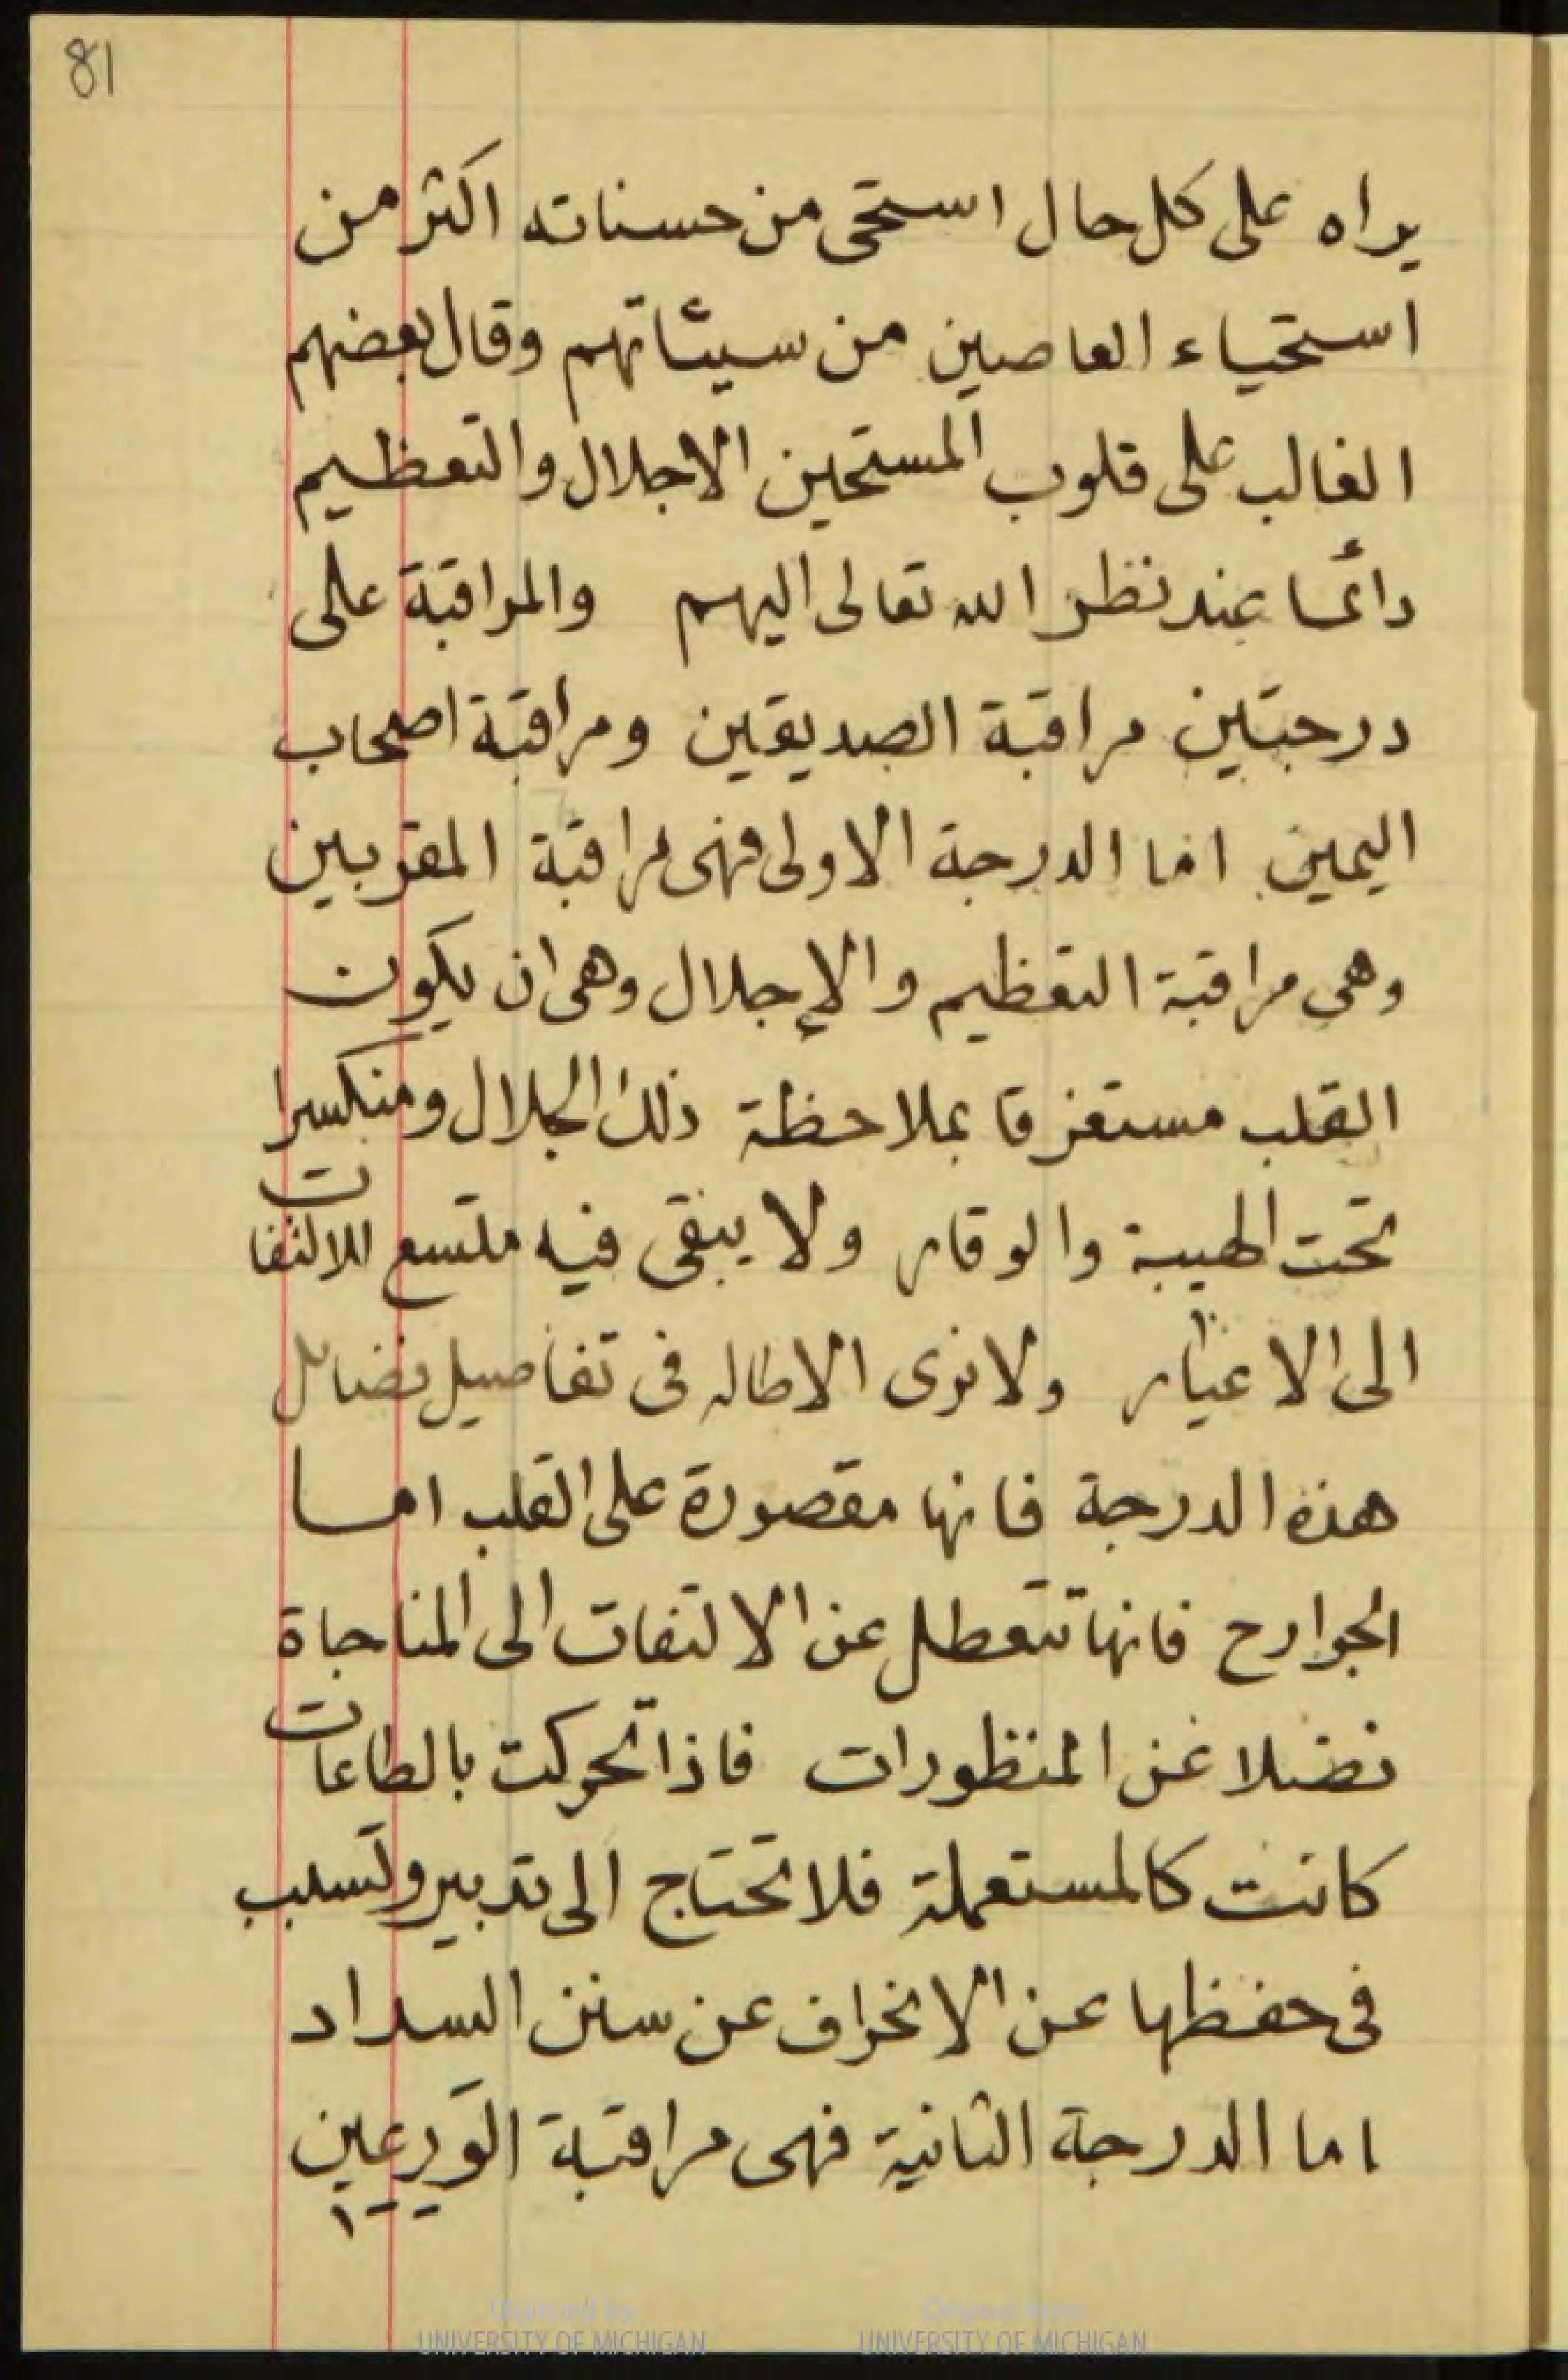 81
يراه على كل حال استحى من حسناته اكثر من
استحياء العاصين من سيئاتهم وقال بعضهم
الغالب على قلوب المستحين الاجلال والتعظيم
دائما عند نظر الله تعالى اليهم والمراقبة على
درجتين مراقبة الصديقين ومراقبة اصحاب
اليمين اما الدرجة الاولى فهى مراقبة المقربين
وهى مراقبة التعظيم والإجلال وهى ان يكون
القلب مستغرقا بملاحظة ذلك الجلال ومنكسرا
تحت الهيبة والوقار ولا يبقى فيه متسع للالتفات
الى الاغيار ولا نرى الاطاله فى تفاصيل فضائل
هذه الدرجة فانها مقصورة على القلب اما
الجوارح فانها تتعطل عن الالتفات الى المناجاة
فضلا عن المنظورات فاذا تحركت بالطاعات
كانت كالمستعملة فلا تحتاج الى تدبير وتسبب
فى حفظها عن الانحراف عن سنن السداد
اما الدرجة الثانية فهى مراقبة الورعين
Digitized by
UNIVERSITY OF MICHIGAN
Original from
UNIVERSITY OF MICHIGAN